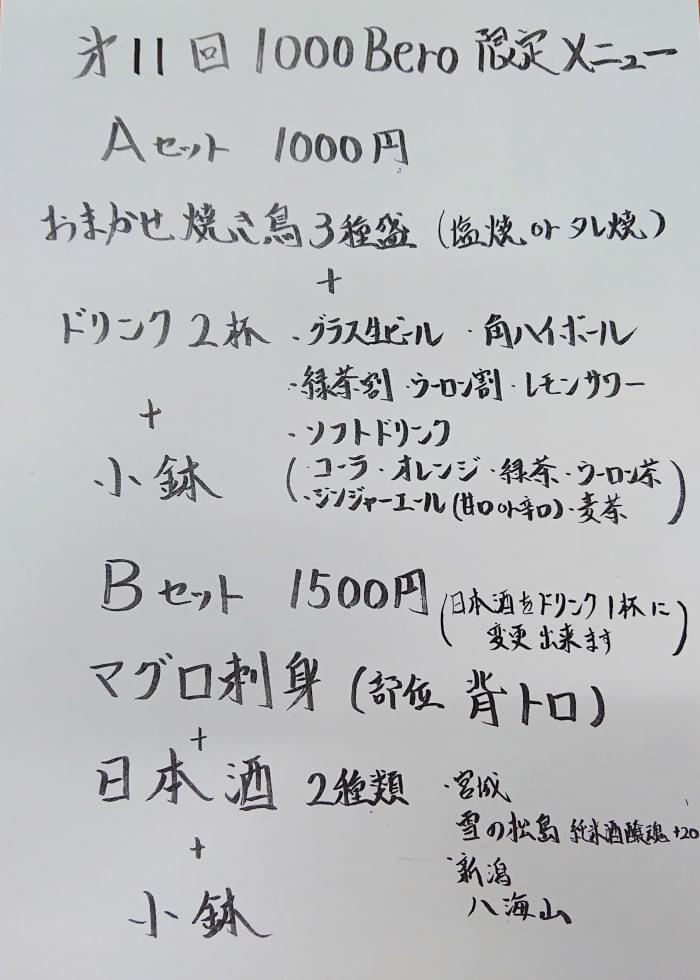 第11回 1000Bero 限定メニュー
Aセット 1000円
おまかせ焼き鳥3種盛（塩焼orタレ焼）
+
ドリンク2杯 ・グラス生ビール ・角ハイボール
・緑茶割・ウーロン割・レモンサワー
+
・ソフトドリンク
小鉢 （・コーラ・オレンジ・緑茶・ウーロン茶
・ジンジャーエール（甘口or辛口）・麦茶）
Bセット 1500円（日本酒をドリンク1杯に
変更出来ます）
マグロ刺身（部位 背トロ）
+
日本酒 2種類 ・宮城
雪の松島 純米酒醸魂 +20
+
・新潟
八海山
小鉢